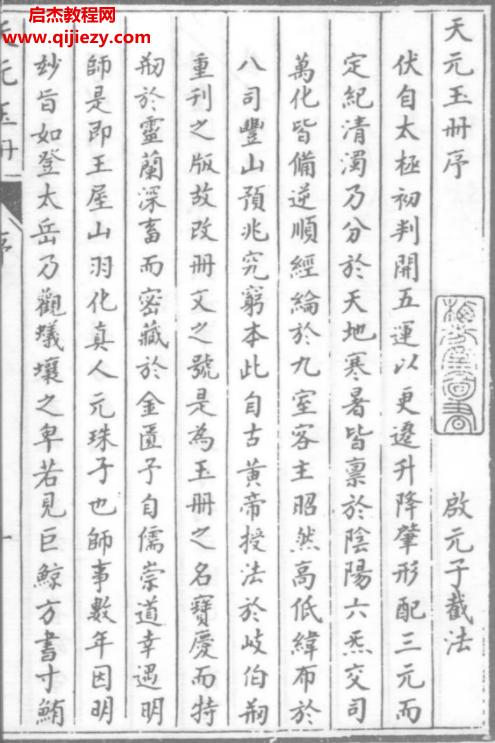 启杰教程网
www.qijiezy.com
天元玉冊序
啟元子截法
伏自太極初判開五運以更遷升降肇形配三元而
定紀清濁乃分於天地寒暑皆禀於陰陽六炁交司
萬化皆備逆順經綸於九室客主昭然高低緯布於
八司豐山預兆究窮本此自古黄帝授法於岐伯刱
重刊之版故改冊文之號是為玉冊之名寶慶而特
刱於靈蘭深畜而密藏於金匱予自儒崇道幸遇明
師是即王屋山羽化真人元珠子也師事數年因明
玅旨如登太岳乃觀蟻壤之卑若見巨鯨方書寸鮪
天元玉冊
序
一